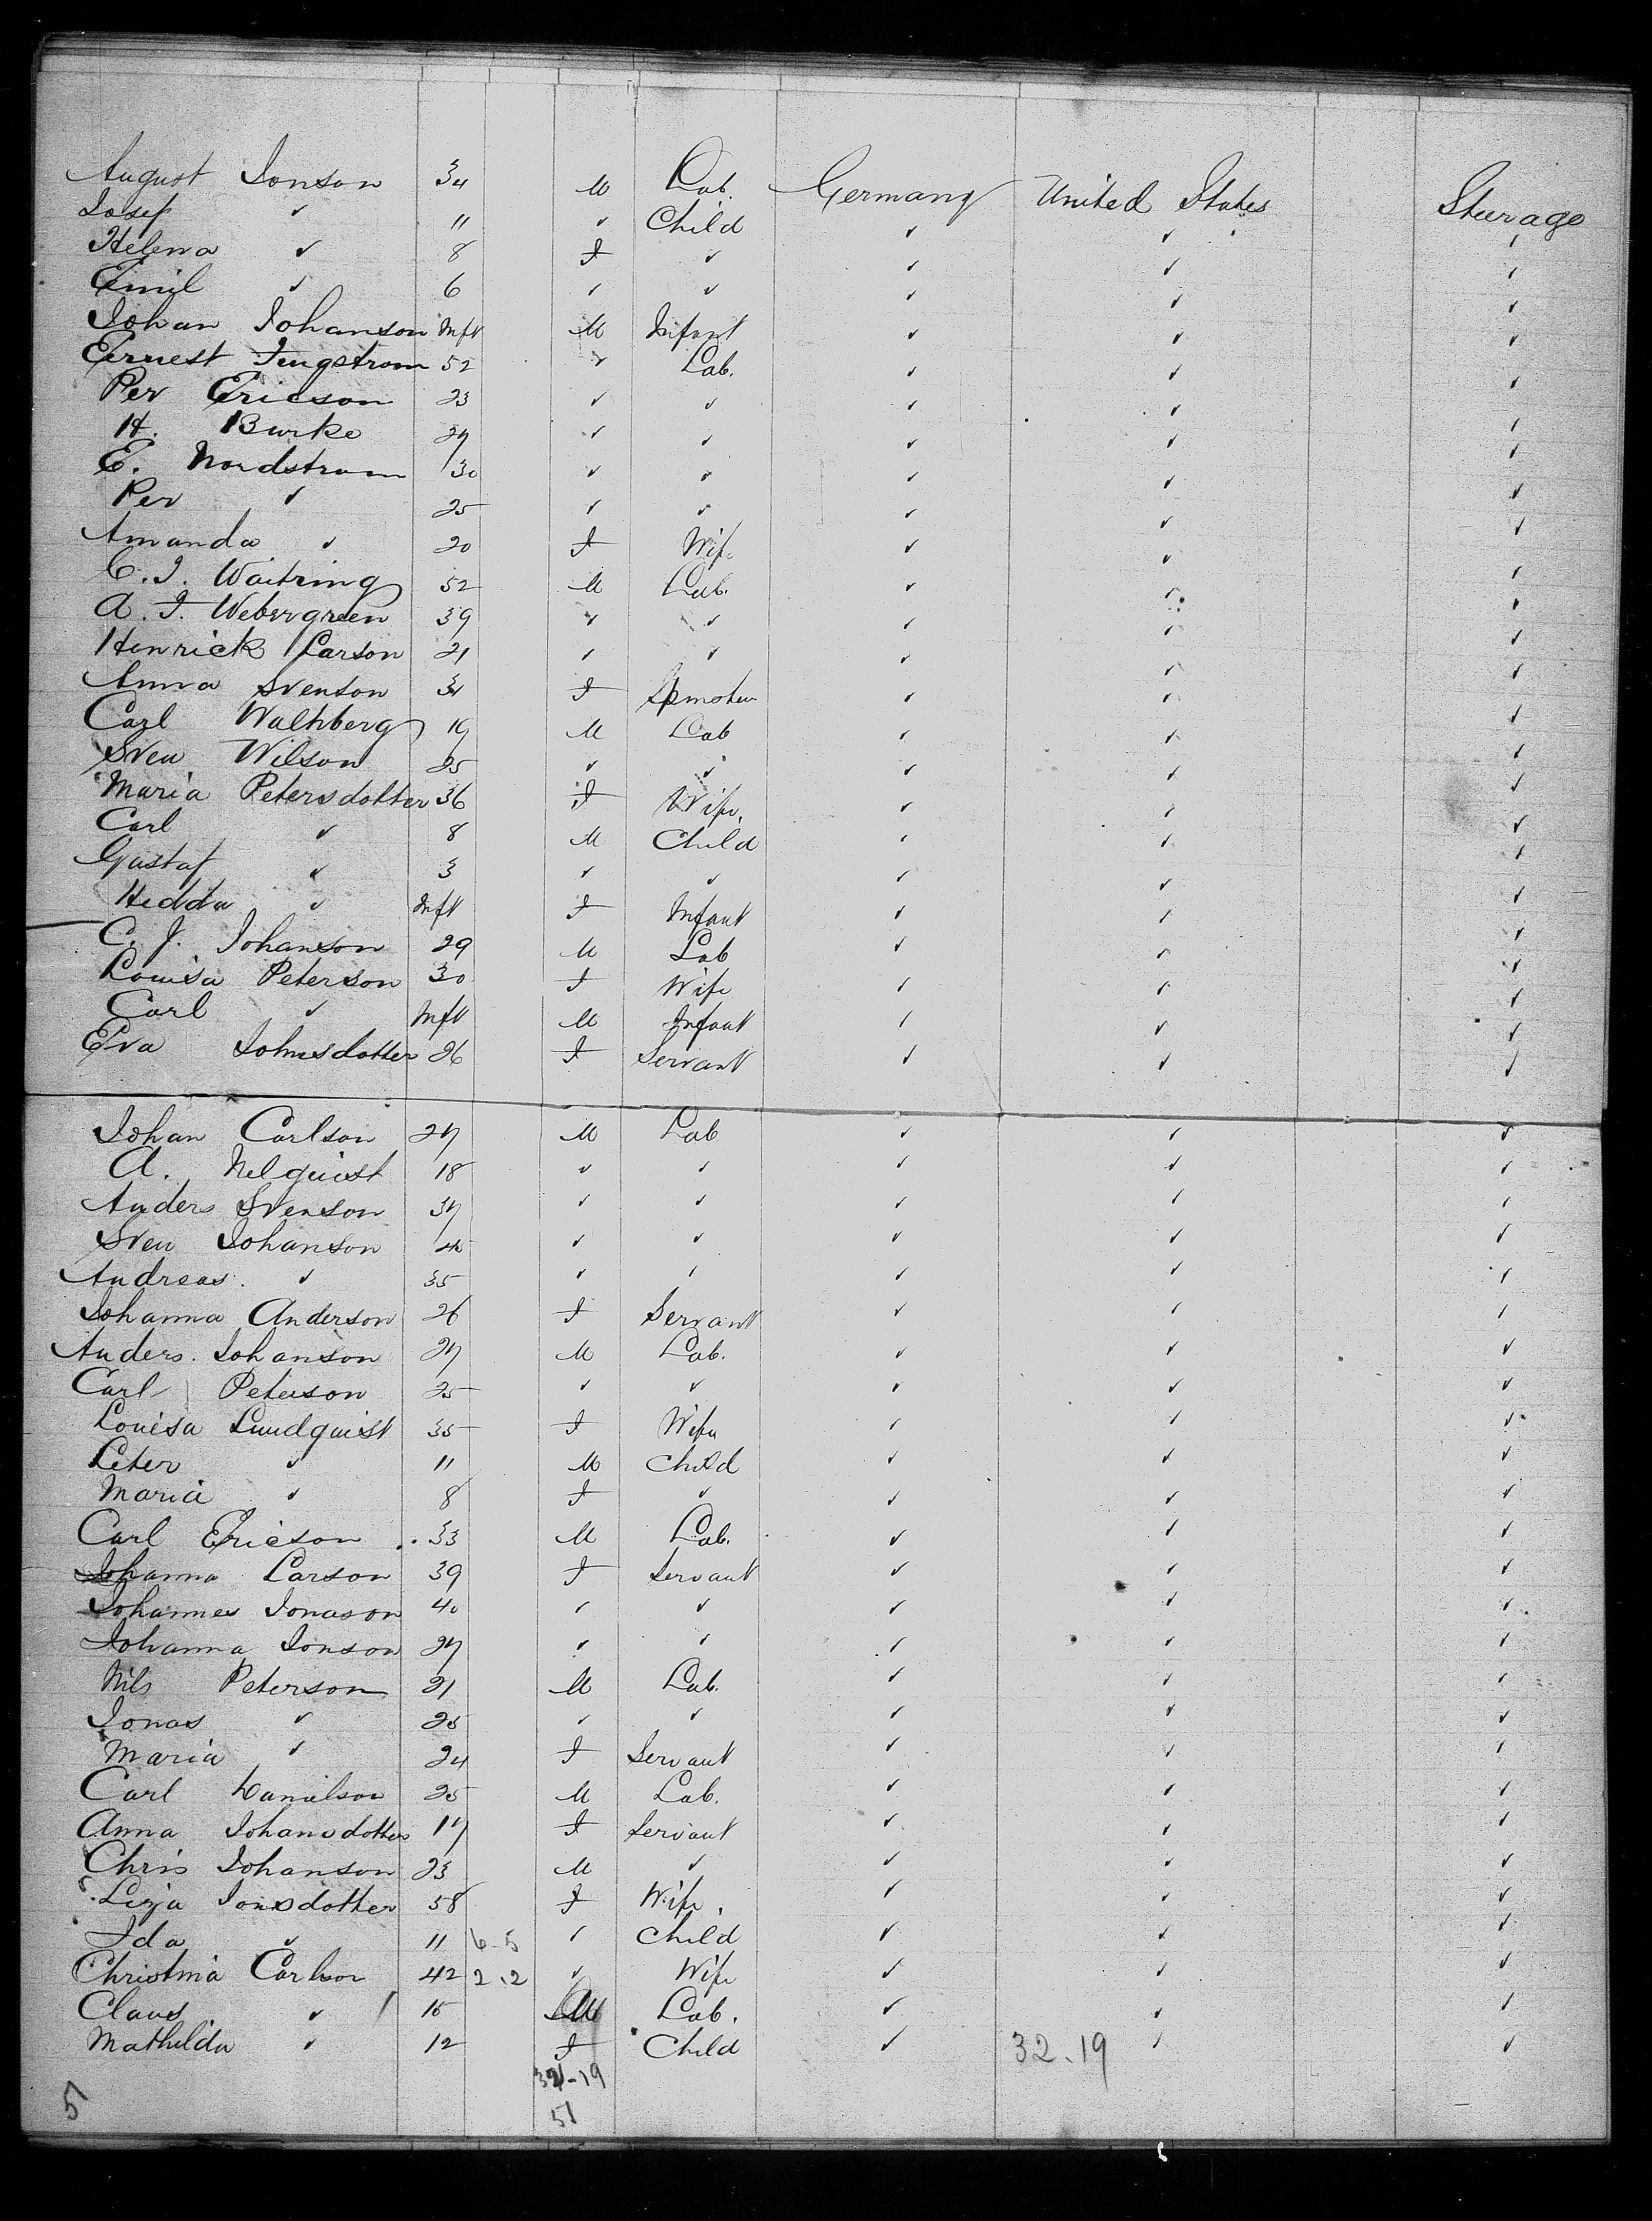 August Jonson 34 M Lab. Germany United States Steerage
Josef ✓ 11 ✓ Child ✓ ✓ ✓
Helena ✓ 8 F ✓ ✓ ✓ ✓
Emil ✓ 6 ✓ ✓ ✓ ✓ ✓
Johan Johanson Inft M Infant ✓ ✓ ✓
Ernest Tengstrom 52 ✓ Lab. ✓ ✓ ✓
Per Ericson 23 ✓ ✓ ✓ ✓ ✓
H. Burke 27 ✓ ✓ ✓ ✓ ✓
E. Nordstrum 30 ✓ ✓ ✓ ✓ ✓
Per ✓ 25 ✓ ✓ ✓ ✓ ✓
Amanda ✓ 20 F Wife ✓ ✓ ✓
C. J. Waitring 52 M Lab. ✓ ✓ ✓
A. F. Webergreen 39 ✓ ✓ ✓ ✓ ✓
Henrick Larson 21 ✓ ✓ ✓ ✓ ✓
Anna Svenson F ✓ ✓ ✓
Carl Walhberg 19 M Lab ✓ ✓ ✓
Sven Wilson 25 ✓ ✓ ✓ ✓ ✓
Maria Petersdotter 36 F Wife. ✓ ✓ ✓
Carl ✓ 8 M Child ✓ ✓ ✓
Gustaf ✓ 3 ✓ ✓ ✓ ✓ ✓
Hedda ✓ Inft F Infant ✓ ✓ ✓
C. J. Johanson 29 M Lab ✓ ✓ ✓
Louisa Peterson 30 F Wife ✓ ✓ ✓
Carl ✓ Inft M Infant ✓ ✓ ✓
Eva Johnsdotter 26 F Servant ✓ ✓ ✓
Johan Carlson 27 M Lab ✓ ✓ ✓
A. Nelquist 18 ✓ ✓ ✓ ✓ ✓
Anders Svenson 37 ✓ ✓ ✓ ✓ ✓
Sven Johanson ✓ ✓ ✓ ✓ ✓
Andreas. ✓ 35 ✓ ✓ ✓ ✓ ✓
Johanna Anderson 26 F Servant ✓ ✓ ✓
Anders. Johanson 27 M Lab. ✓ ✓ ✓
Carl Peterson 25 ✓ ✓ ✓ ✓ ✓
Louisa Lundquist 35 F Wife ✓ ✓ ✓
Peter ✓ 11 M Child ✓ ✓ ✓
Maria ✓ 8 F ✓ ✓ ✓ ✓
Carl Ericson 33 M Lab. ✓ ✓ ✓
Johanna Larson 39 F Servant ✓ ✓ ✓
Johannes Jonason 40 ✓ ✓ ✓ ✓ ✓
Johanna Jonson 27 ✓ ✓ ✓ ✓ ✓
Nils Peterson 21 M Lab. ✓ ✓ ✓
Jonas ✓ 25 ✓ ✓ ✓ ✓ ✓
Maria ✓ 24 F Servant ✓ ✓ ✓
Carl Danielson 25 M Lab. ✓ ✓ ✓
Anna Johansdotter 17 F Servant ✓ ✓ ✓
Chris Johanson 23 M ✓ ✓ ✓ ✓
Lisja Jonsdotter 58 F Wife. ✓ ✓ ✓
Ida ✓ 11 6-5 ✓ Child ✓ ✓ ✓
Christina Carlson 42 2.2 ✓ Wife ✓ ✓ ✓
Claus ✓ 15 M Lab. ✓ ✓ ✓
Mathilda ✓ 12 F Child ✓ 32.19 ✓ ✓
32-19
51
5